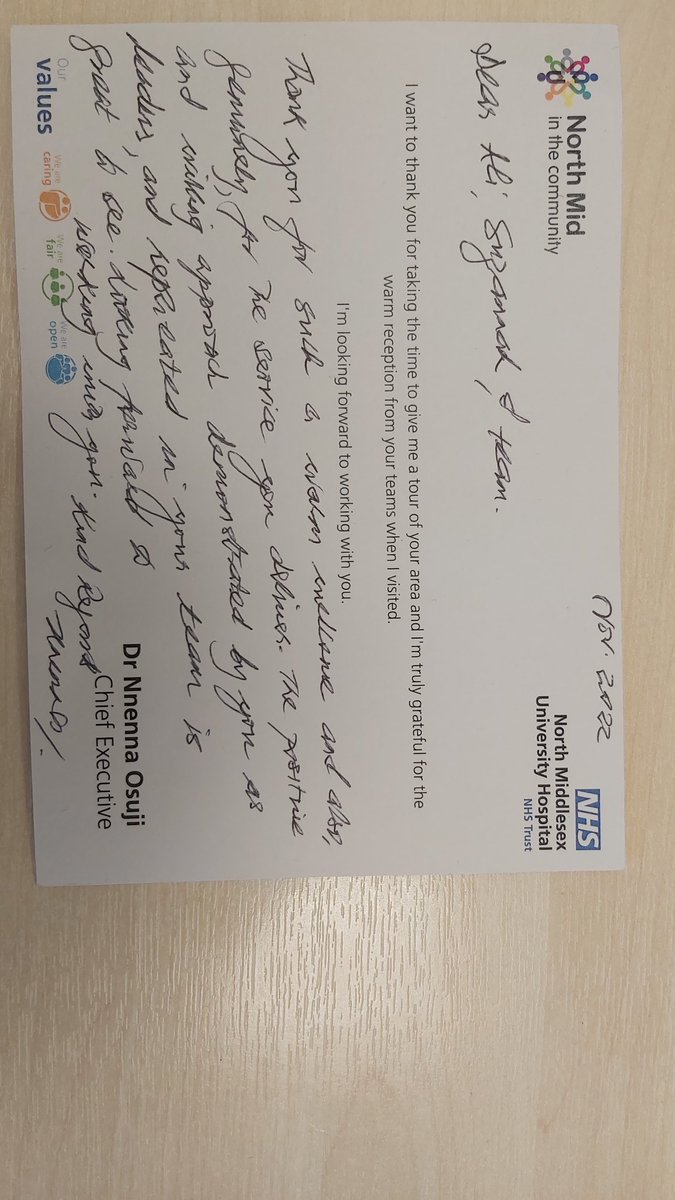 North Mid
in the community
Nov. 2022
NHS
North Middlesex
University Hospital
NHS Trust
Dear Ali, Suzannah, & team.
I want to thank you for taking the time to give me a tour of your area and I'm truly grateful for the
warm reception from your teams when I visited.
I'm looking forward to working with you.
Thank you for such a warm welcome and also,
genuinely, for the service you deliver. The positive
and willing approach demonstrated by you as
leaders, and replicated in your team is
great to see. Looking forward to
working with you. Kind Regards
Nnenna
Dr Nnenna Osuji
Chief Executive
Our
values
We are
caring
We are
fair
We are
open